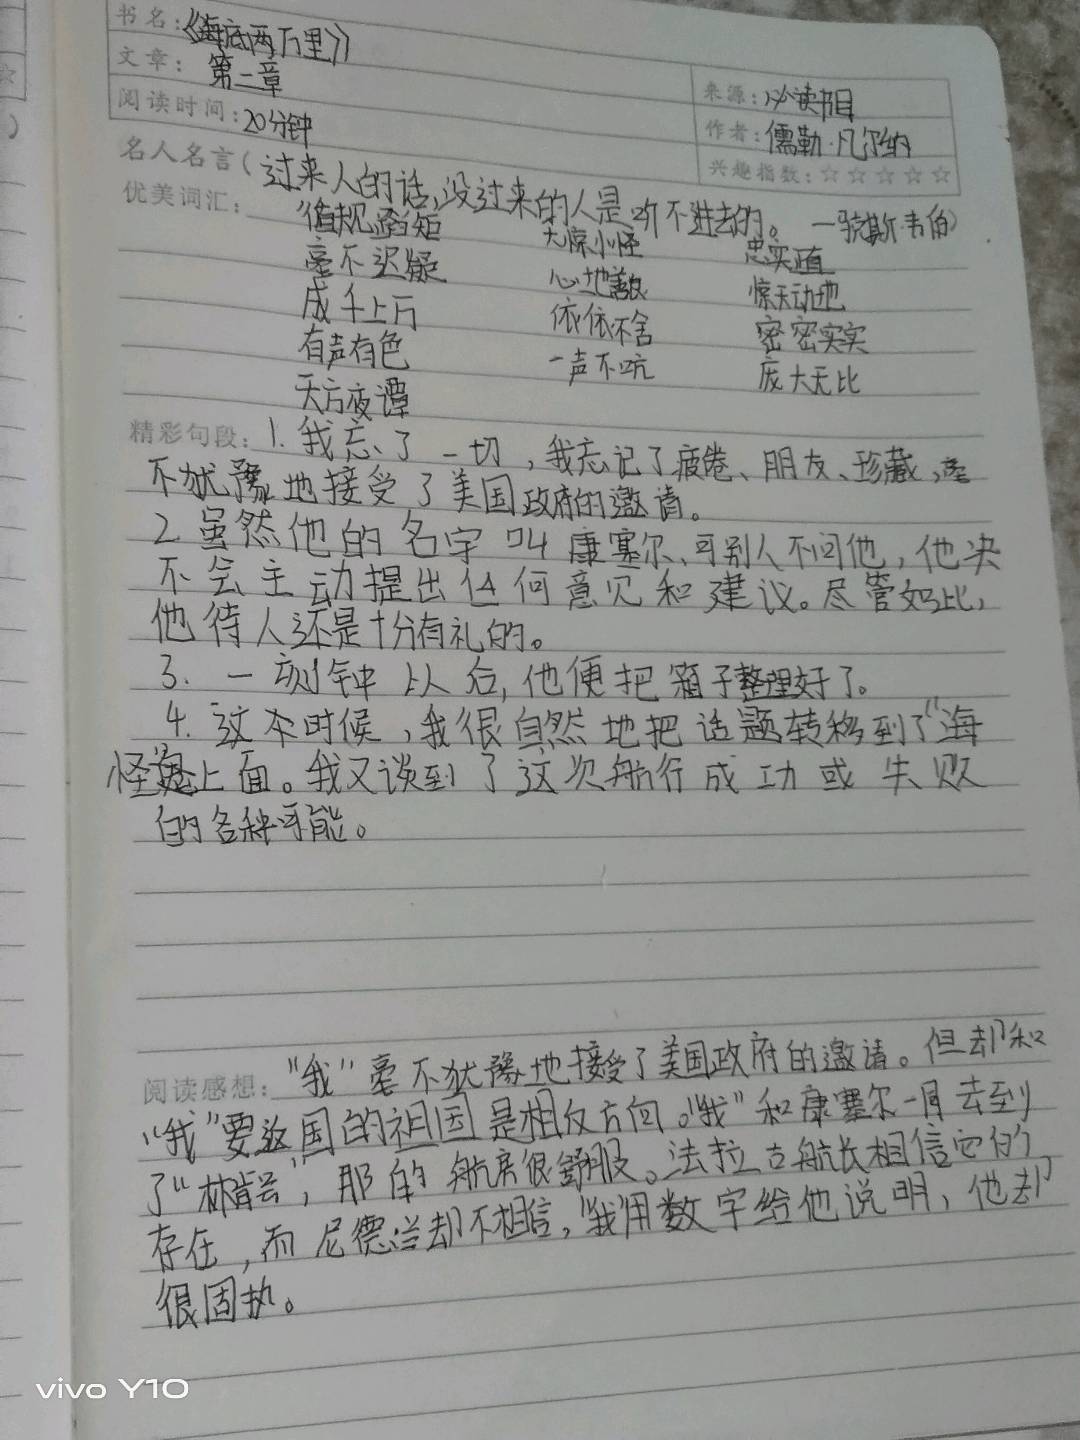 书名：《海底两万里》
文章：第二章
阅读时间：20分钟
来源：必读书目
作者：儒勒·凡尔纳
兴趣指数：☆☆☆☆☆
名人名言（过来人的话，没过来的人是听不进去的。—马克斯·韦伯）
优美词汇：循规蹈矩 大惊小怪 忠实正直
毫不迟疑 心地善良 惊天动地
成千上万 依依不舍 密密实实
有声有色 一声不吭 庞大无比
天方夜谭
精彩句段：1.我忘了一切，我忘记了疲倦、朋友、珍藏，毫
不犹豫地接受了美国政府的邀请。
2.虽然他的名字叫康塞尔、可别人不问他，他决
不会主动提出任何意见和建议。尽管如此，
他待人还是十分有礼的。
3.一刻钟以后，他便把箱子整理好了。
4.这个时候，我很自然地把话题转移到了“海
怪”上面。我又谈到了这次航行成功或失败
的各种可能。
阅读感想：“我”毫不犹豫地接受了美国政府的邀请。但却和
“我”要返国的祖国是相反方向。“我”和康塞尔一同去到
了“林肯号”，那的航房很舒服。法拉古舰长相信它的
存在，而尼德兰却不相信，“我”用数字给他说明，他却
很固执。
vivo Y10